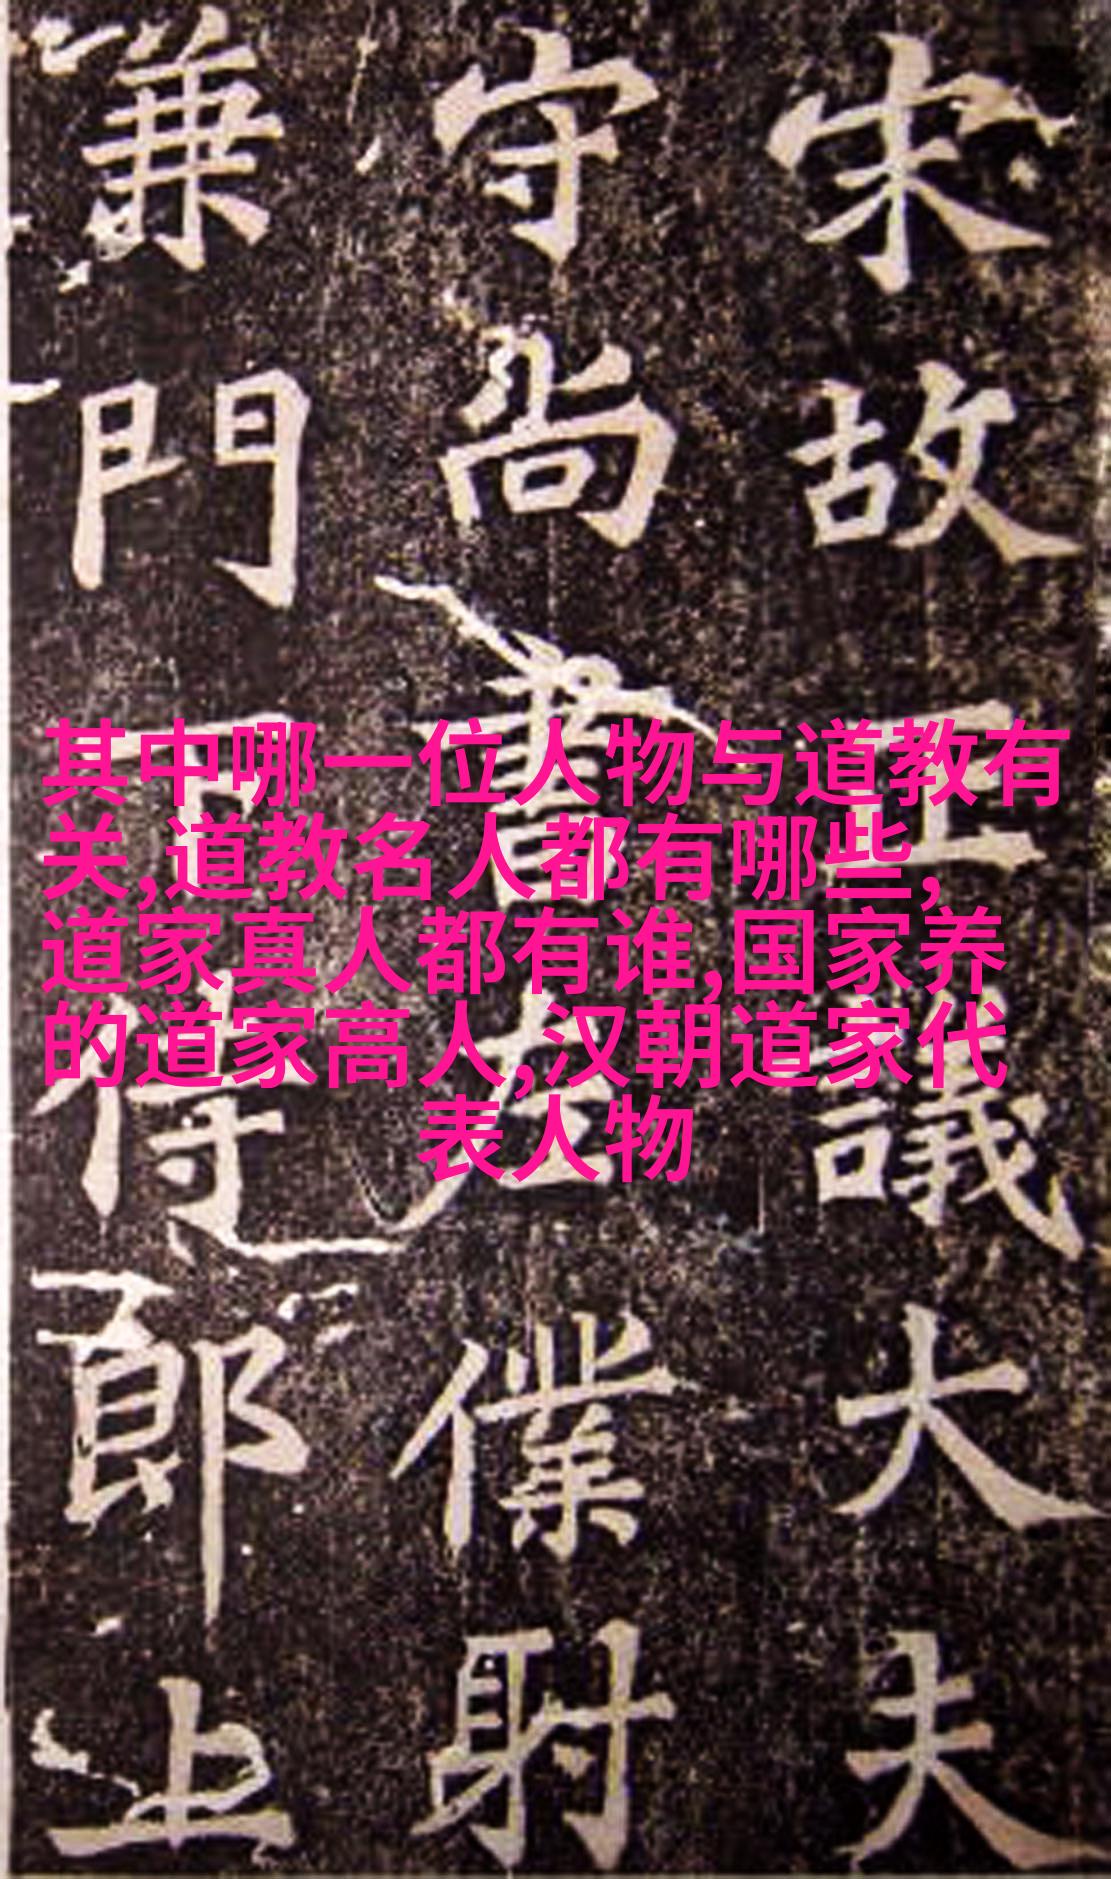 宋故正議大夫
守尚書左僕射
兼門下侍郎上
其中哪一位人物与道教有
关,道教名人都有哪些,
道家真人都有谁,国家养
的道家高人,汉朝道家代
表人物